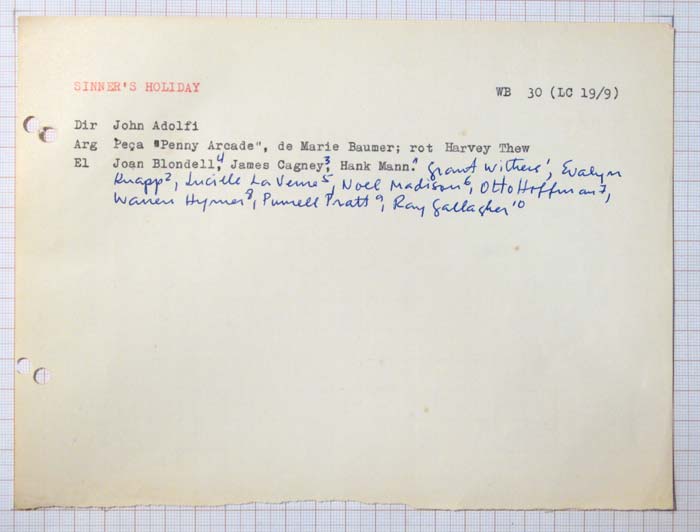 SINNER'S HOLIDAY
WB 30 (LC 19/9)
Dir John Adolfi
Arg Peça "Penny Arcade", de Marie Baumer; rot Harvey Thew
El Joan Blondell4, James Cagney3, Hank Mann. Grant Withers1, Evalyn
Knapp2, Lucille La Verne5, Noel Madison6, Otto Hoffman7,
Warren Hymer8, Purnell Pratt9, Ray Gallagher10